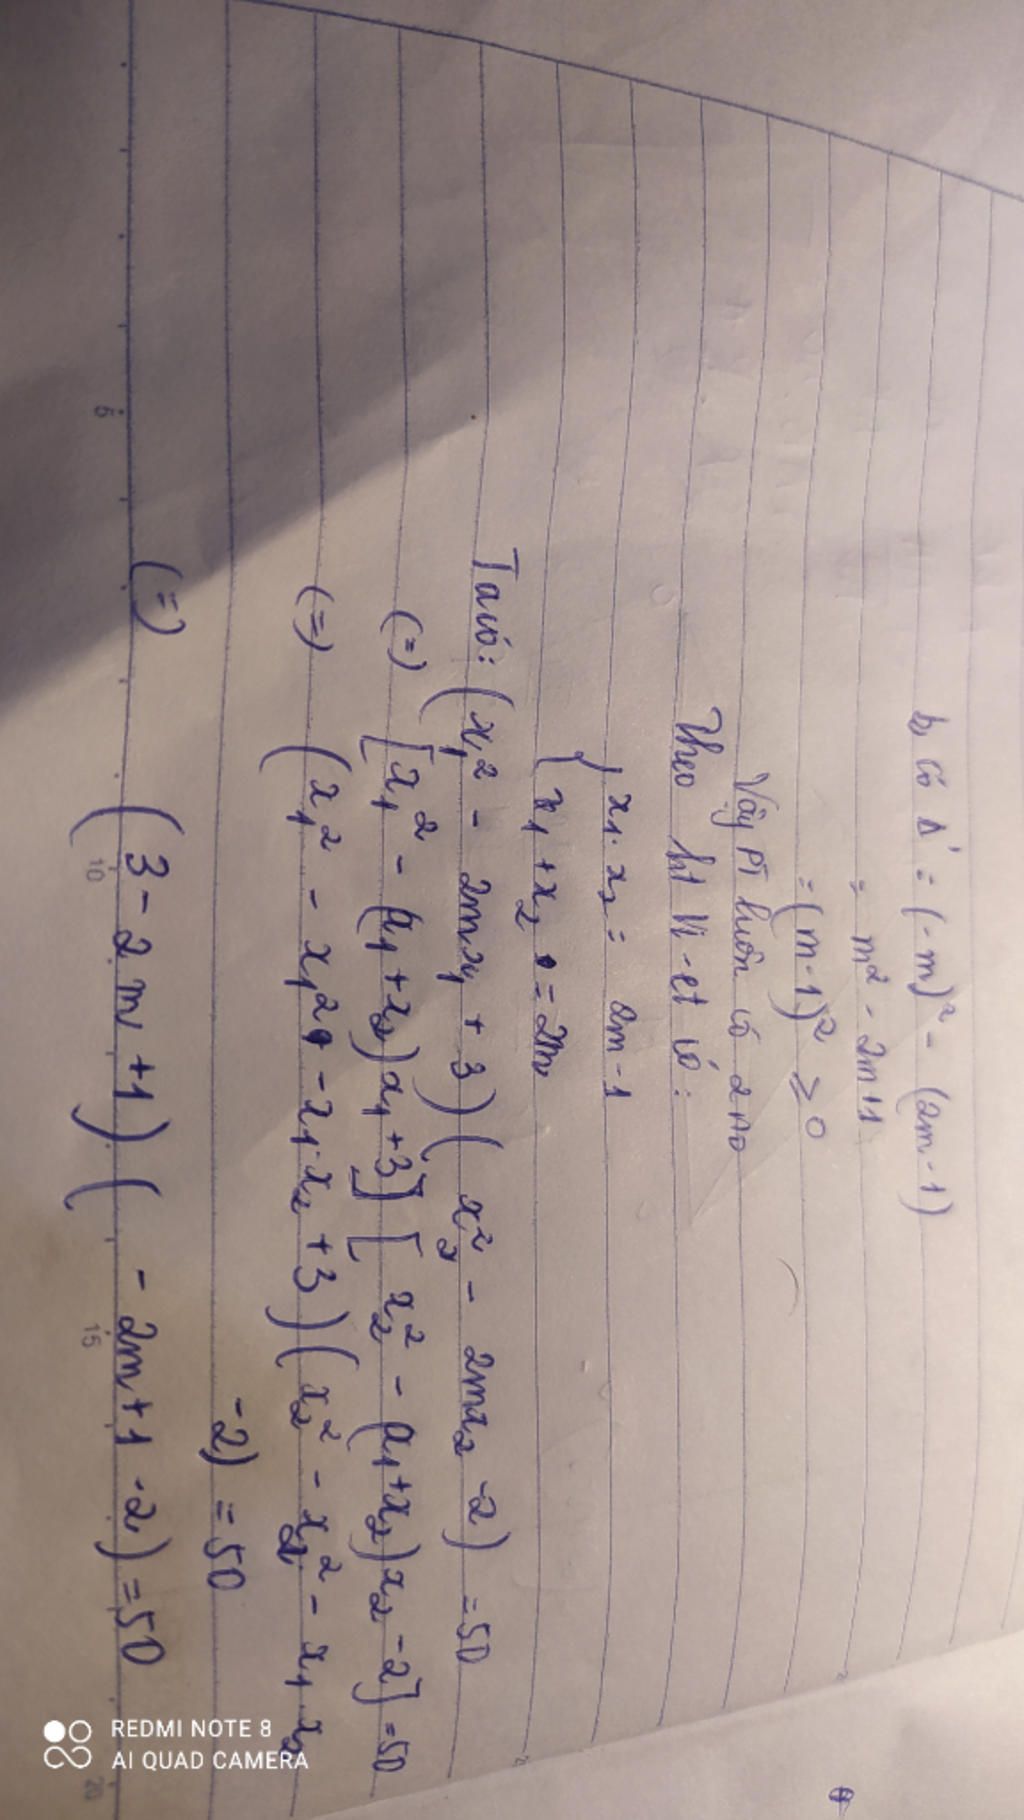 b, có Δ' = (-m)² - (2m-1)
= m² - 2m+1
= (m-1)² ≥ 0
Vậy PT luôn có 2 no
Theo hệ Vi-et có:
{ x₁.x₂ = 2m-1
x₁+x₂ = 2m
Ta có: (x₁² - 2mx₁ + 3)(x₂² - 2mx₂ -2) = 50
(=) [x₁² - (x₁+x₂)x₁+3][x₂² - (x₁+x₂)x₂ -2] = 50
(=) (x₁² - x₁² - x₁.x₂ +3)(x₂² - x₂² - x₁.x₂
-2) = 50
(=) (3-2m+1)(-2m+1-2) = 50
5
10
15
20
REDMI NOTE 8
AI QUAD CAMERA